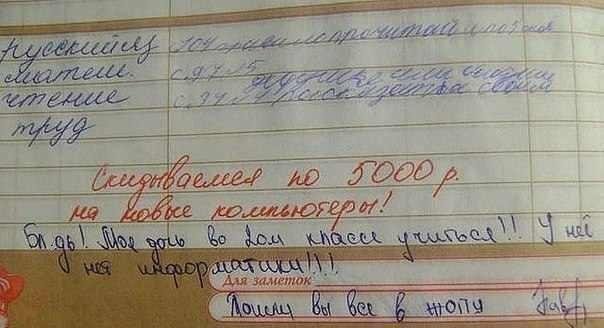 русский яз 104 правило прочитай
матем. с.97 №5
чтение с.34
труд
Скидываемся по 5000 р.
на новые компьютеры!
Бл.дь! Моя дочь во 2ом классе учиться!!! У неё
нет информатики!!!!
Для заметок
Пошли вы все в жопу